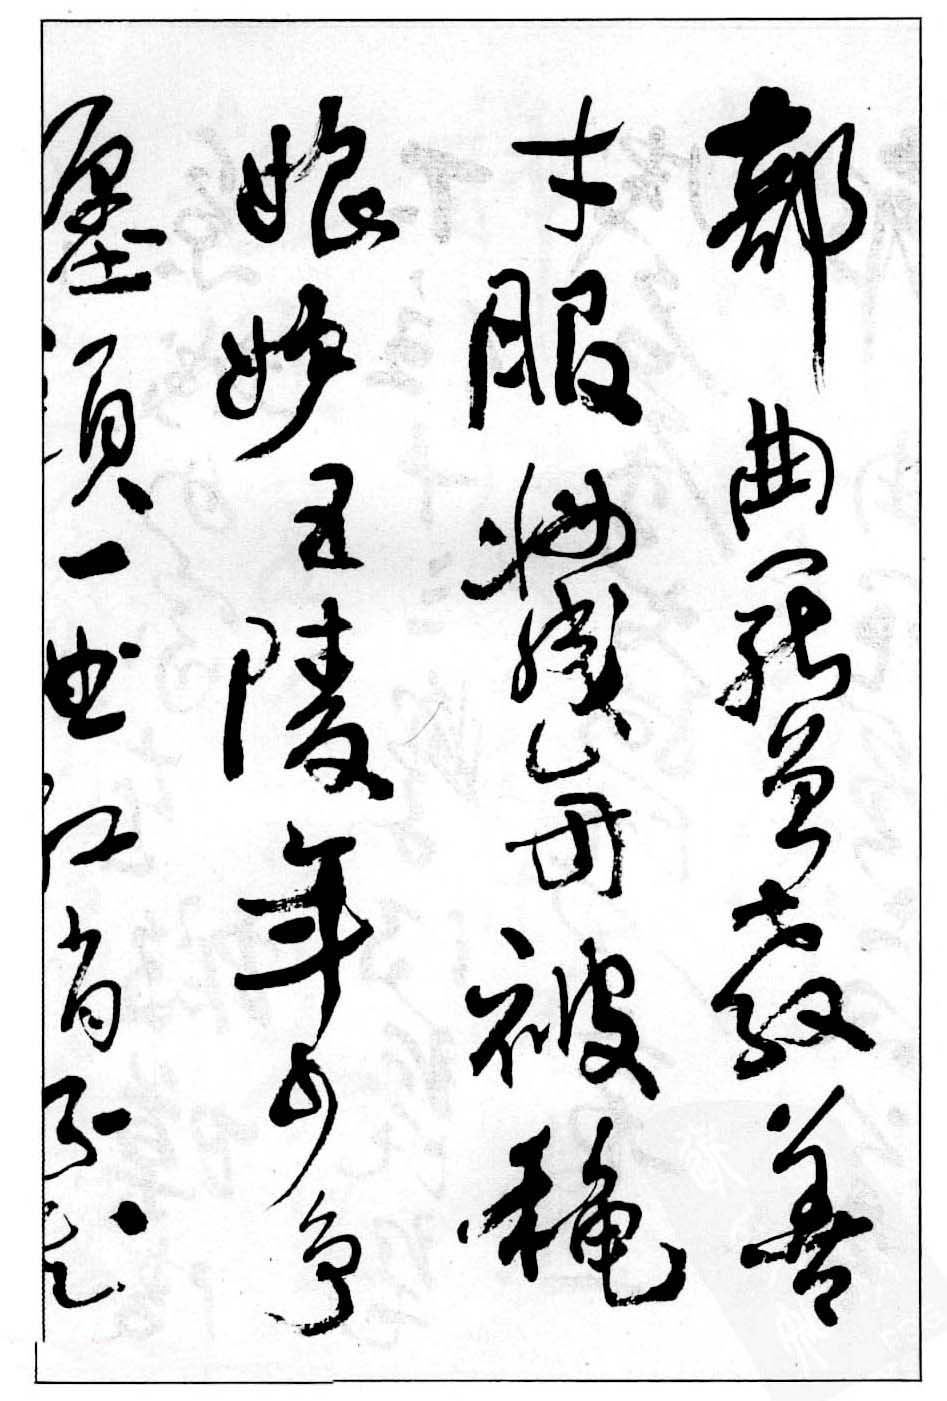 部曲罷曾教善
才服妝成每被穐
娘妒五陵年少争
纏頭一曲紅綃不知